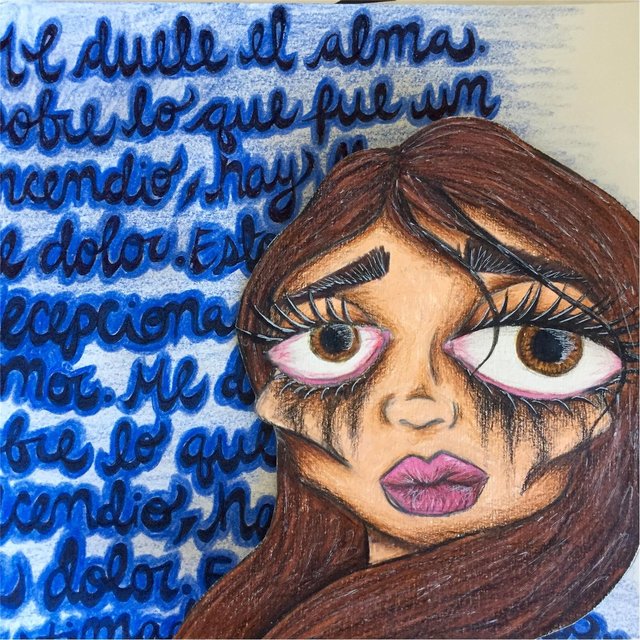 Me duele el alma.
sobre lo que fue un
ncendio, hay
e dolor. Esto
ecepciona
mor. Me d
bre lo que
cendio, ha
dolor. E
stima